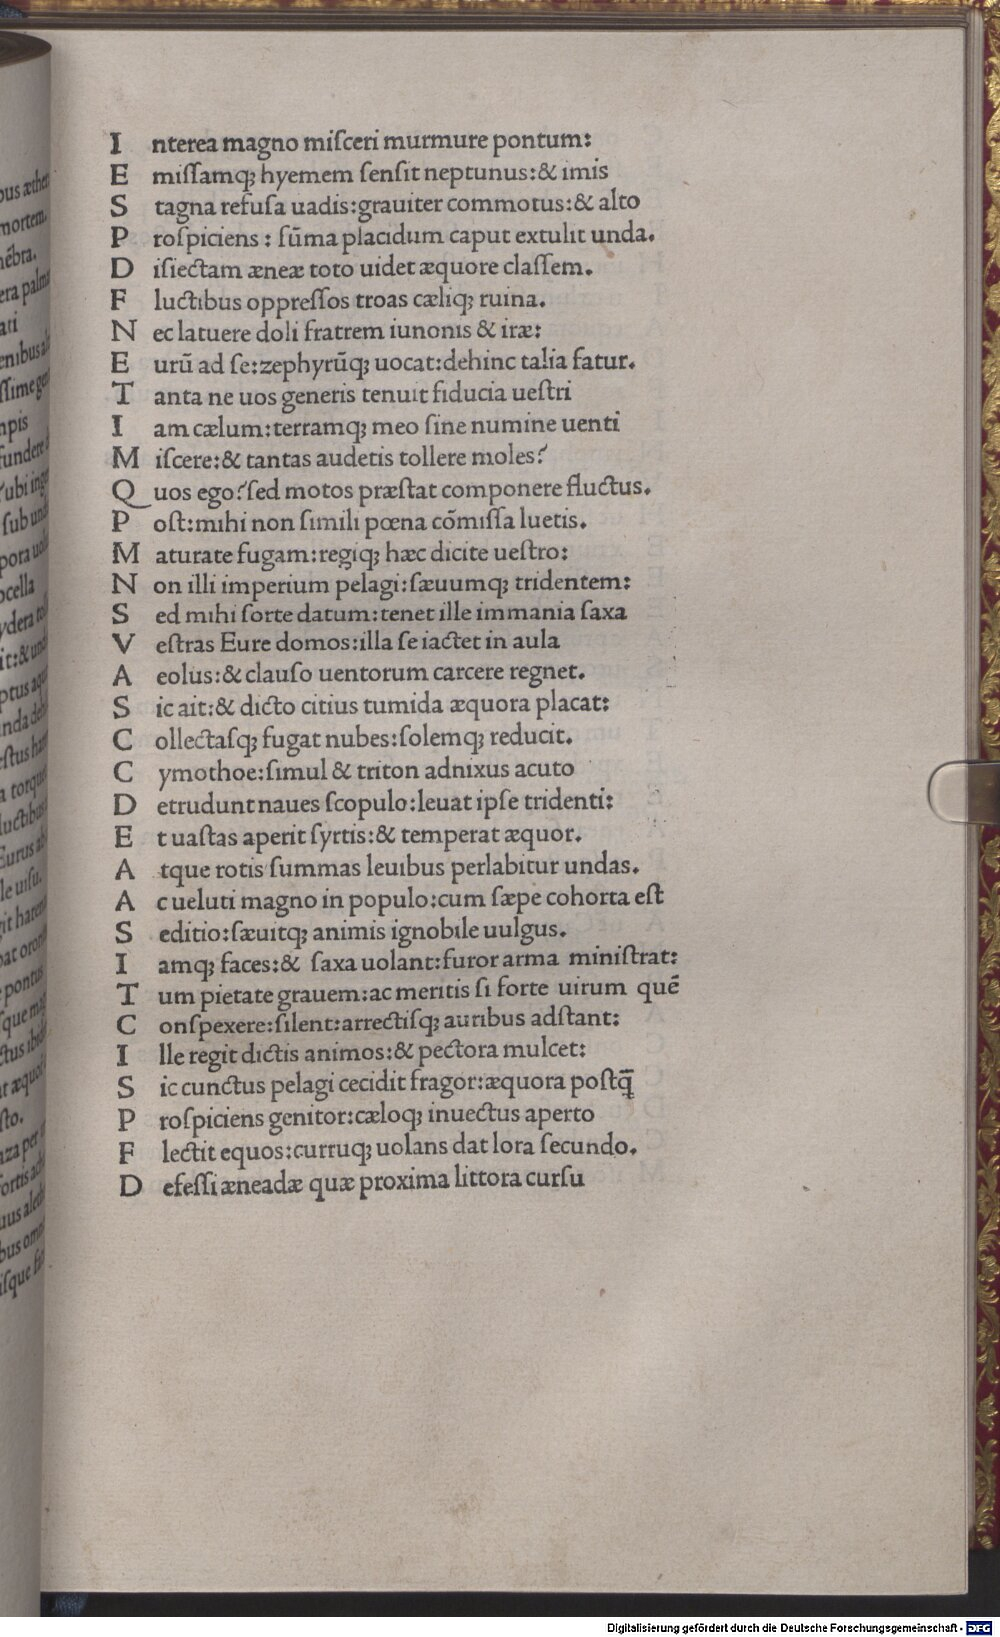 I nterea magno miſceri murmure pontum:
E miſſamqꝫ hyemem ſenſit neptunus:& imis
S tagna refuſa uadis:grauiter commotus:& alto
P roſpiciens: ſūma placidum caput extulit unda.
D iſiectam æneæ toto uidet æquore claſſem.
F luctibus oppreſſos troas cæliqꝫ ruina.
N ec latuere doli fratrem iunonis & iræ:
E urū ad ſe:zephyrūqꝫ uocat:dehinc talia fatur.
T anta ne uos generis tenuit fiducia ueſtri
I am cælum:terramqꝫ meo ſine numine uenti
M iſcere:& tantas audetis tollere moles?
Q uos ego?ſed motos præſtat componere fluctus.
P oſt:mihi non ſimili pœna cōmiſſa luetis.
M aturate fugam:regiqꝫ hæc dicite ueſtro:
N on illi imperium pelagi:ſæuumqꝫ tridentem:
S ed mihi ſorte datum:tenet ille immania ſaxa
V eſtras Eure domos:illa ſe iactet in aula
A eolus:& clauſo uentorum carcere regnet.
S ic ait:& dicto citius tumida æquora placat:
C ollectaſqꝫ fugat nubes:ſolemqꝫ reducit.
C ymothoe:ſimul & triton adnixus acuto
D etrudunt naues ſcopulo:leuat ipſe tridenti:
E t uaſtas aperit ſyrtis:& temperat æquor.
A tque rotis ſummas leuibus perlabitur undas.
A c ueluti magno in populo:cum ſæpe cohorta eſt
S editio:ſæuitqꝫ animis ignobile uulgus.
I amqꝫ faces:& ſaxa uolant:furor arma miniſtrat:
T um pietate grauem:ac meritis ſi forte uirum quē
C onſpexere:ſilent:arrectiſqꝫ auribus adſtant:
I lle regit dictis animos:& pectora mulcet:
S ic cunctus pelagi cecidit fragor:æquora poſtq̄
P roſpiciens genitor:cæloqꝫ inuectus aperto
F lectit equos:curruqꝫ uolans dat lora ſecundo.
D efeſſi æneadæ quæ proxima littora curſu
Digitalisierung gefördert durch die Deutsche Forschungsgemeinschaft - DFG